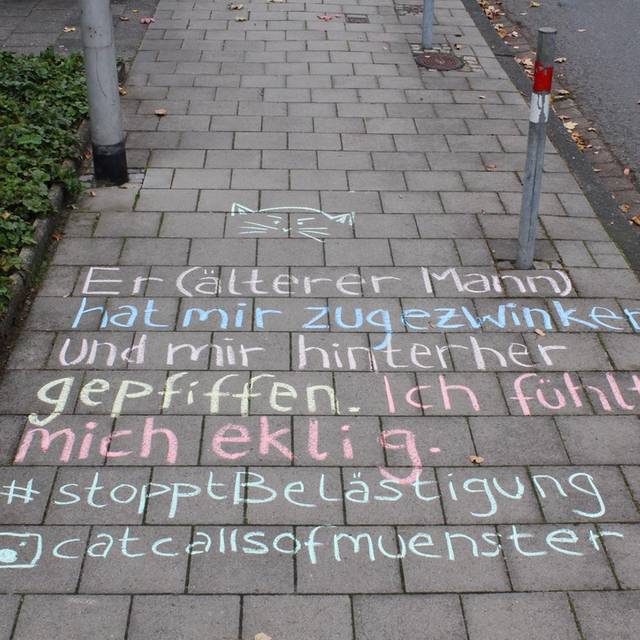 Er (älterer Mann)
hat mir zugezwinker
und mir hinterher
gepfiffen. Ich fühlt
mich eklig.
#stopptBelästigung
catcallsofmuenster